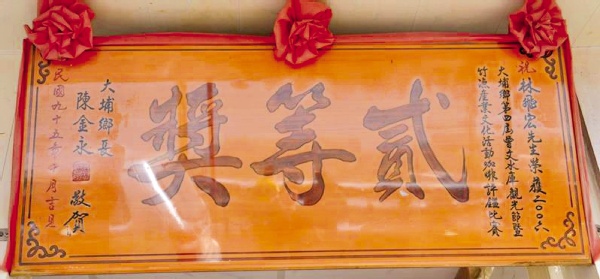 祝
林飛宏先生榮獲二〇〇六
大埔鄉第四屆曾文水庫觀光節暨
竹漁產業文化活動咖啡評鑑比賽
貳等獎
大埔鄉長
陳金永
敬賀
民國九十五年十月吉旦